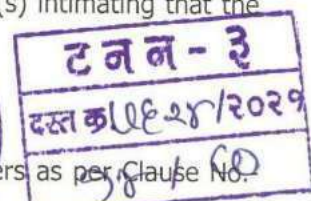 (s) intimating that the
ट न न - ३
दस्त क्र /२०२१
ers as per Clause No.